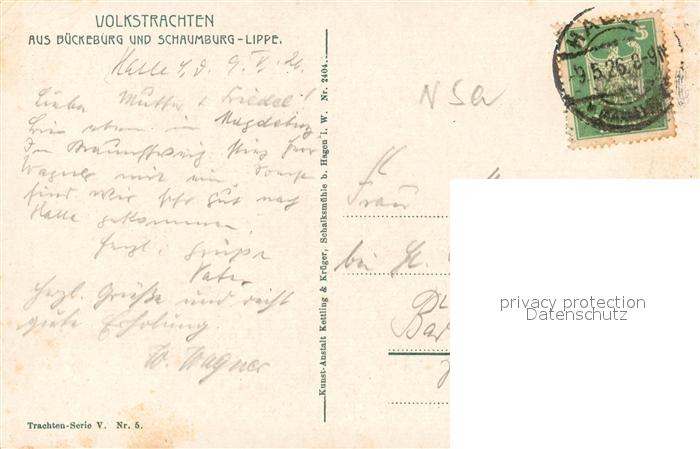 VOLKSTRACHTEN
AUS BÜCKEBURG UND SCHAUMBURG-LIPPE.
Halle 9. V. 26
Liebe Mutter + Friedel!
in Magdeburg
In Braunschweig stieg Herr
Wagner mit ein
sind wir sehr gut nach
Halle gekommen.
Herzl. Grüße
Vater
Herzl. Grüße und recht
gute Erholung
W. Wagner
Trachten-Serie V. Nr. 5.
Kunst-Anstalt Kettling & Krüger, Schalksmühle b. Hagen i. W. Nr. 2404.
HALLE
9.5.26.8-9N
5
Frau
bei
Bad
privacy protection
Datenschutz